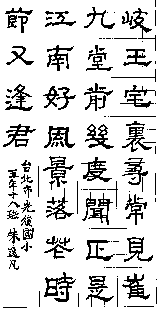 岐王宅裏尋常見崔
九堂前幾度聞正是
江南好風景落花時
節又逢君
台北市光復國小
五年十八班 朱逸凡